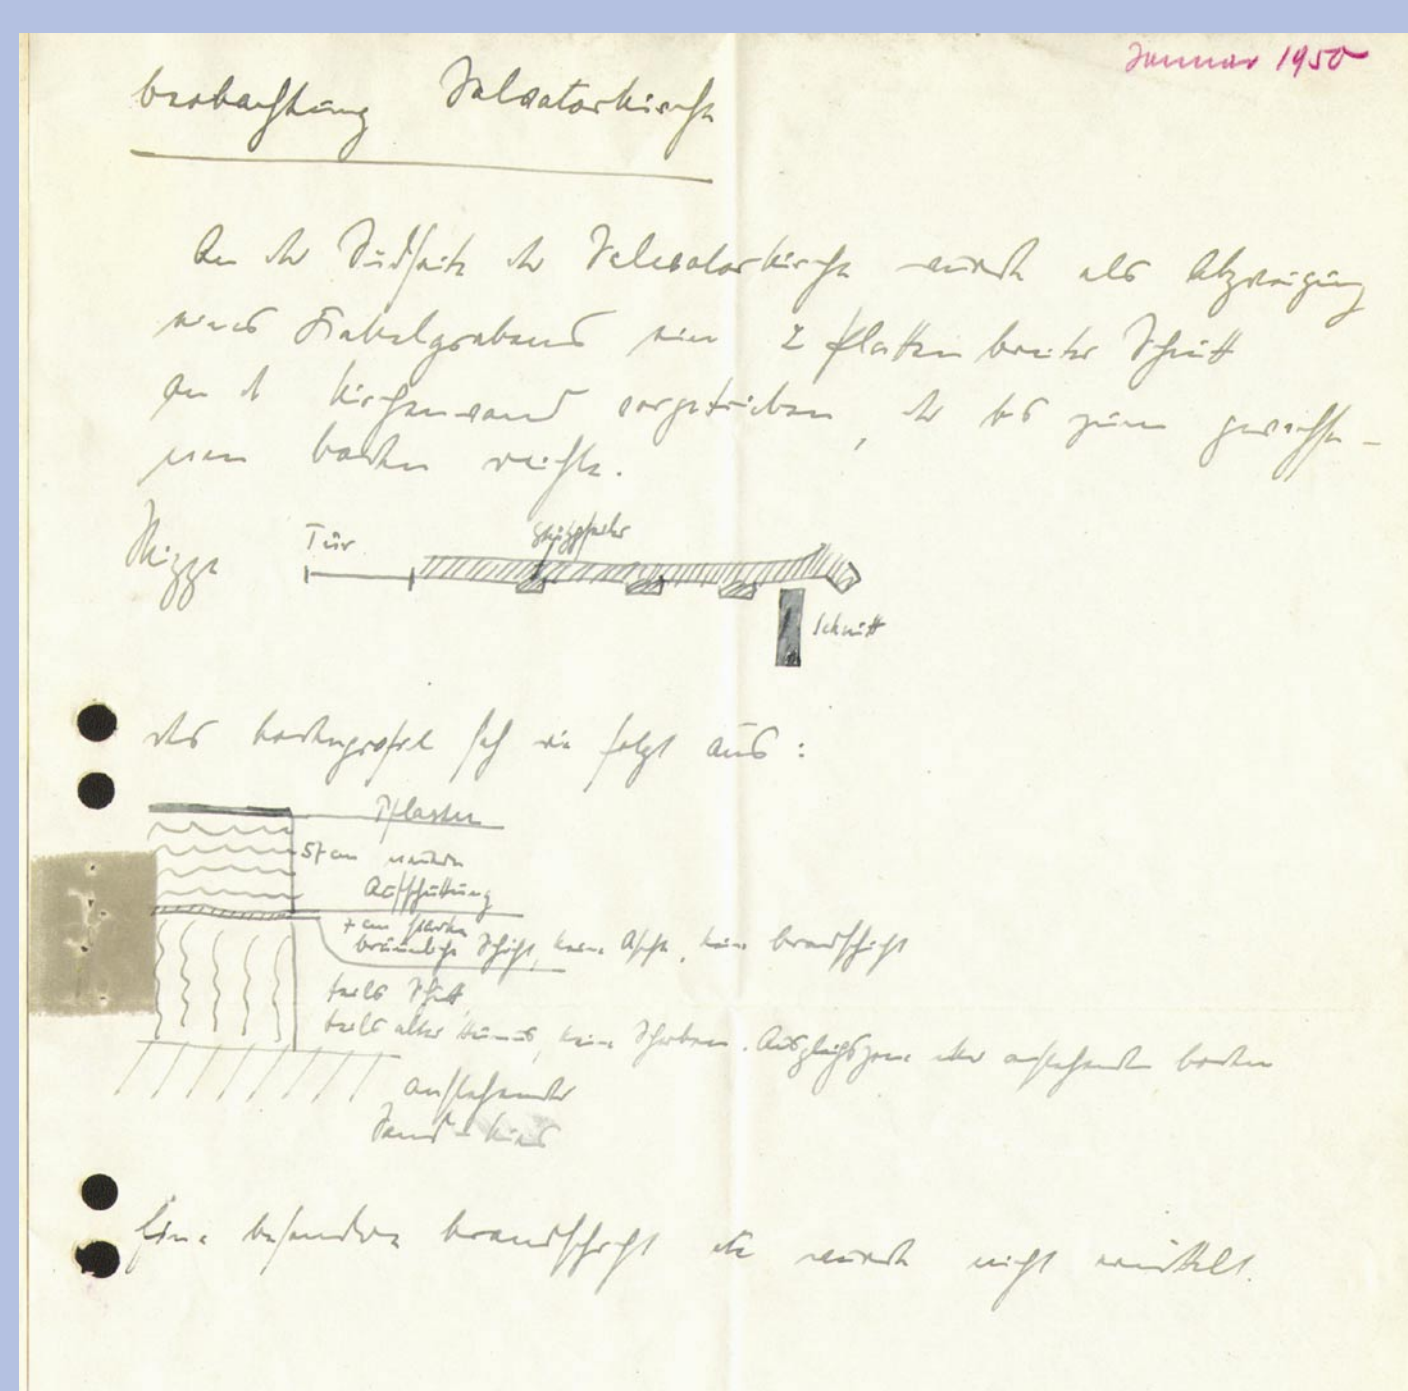 Januar 1950
Beobachtung Salvatorkirche
An der Südseite der Salvatorkirche wurde als Abzweigung
eines Kabelgrabens ein 2 Platten breiter Schnitt
an d Kirchenwand vorgetrieben, der bis zum gewachse-
nen Boden reichte.
Skizze
Tür
Stützpfeiler
Schnitt
das Bodenprofil sah wie folgt aus:
Pflaster
57 cm moderne
Aufschüttung
7 cm starke
bräunliche Schicht, keine Asche, keine Brandschicht
teils Schutt
teils alter Humus, keine Scherben. Ausgleichszone über anstehenden Boden
anstehender
Sand - Kies
Eine besondere Brandschicht etc wurde nicht ermittelt.